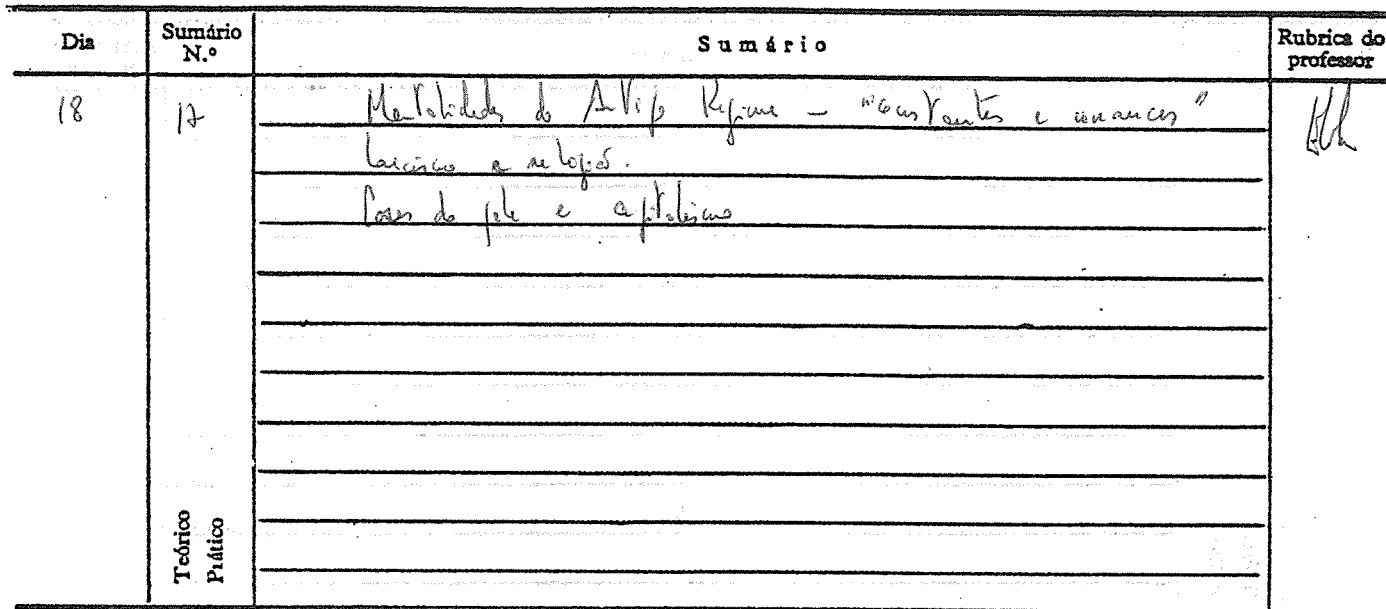 Dia Sumário N.º Sumário Rubrica do professor
18 17 Mentalidades do Antigo Regime - "constantes e
Laicismo e religião.
e capitalismo
Teórico
Prático